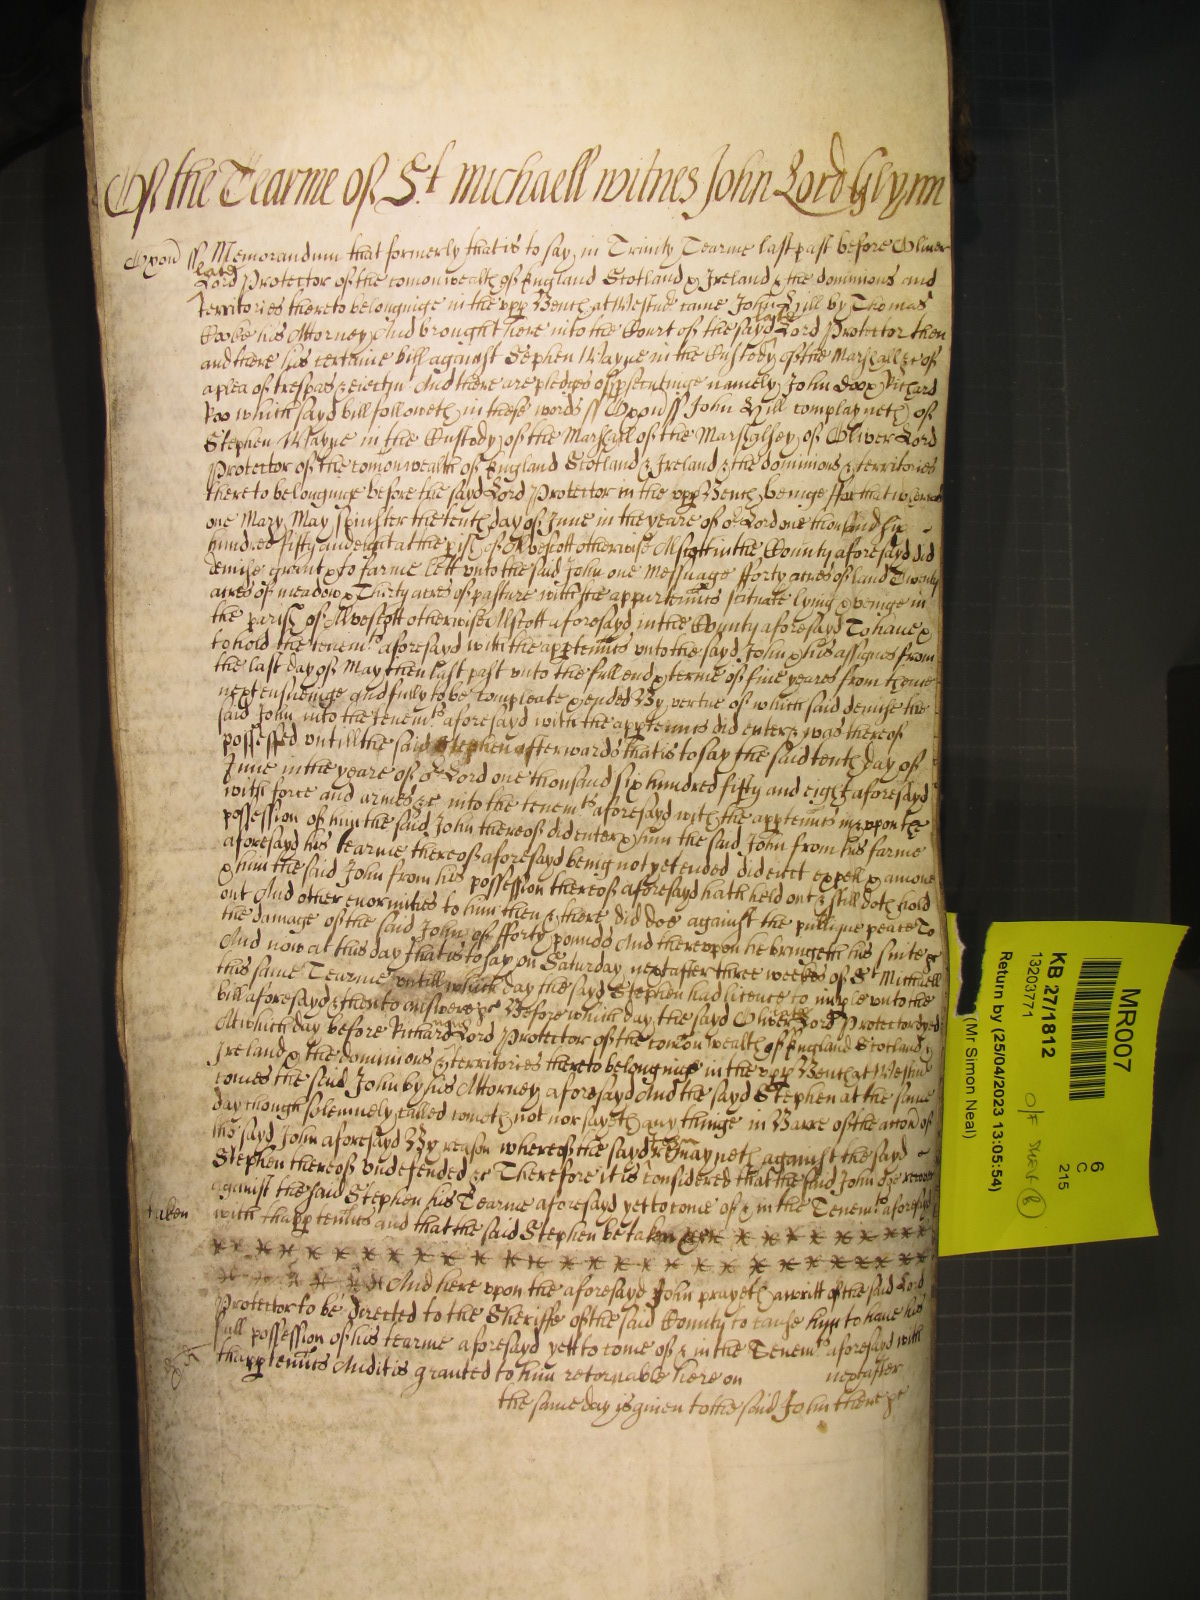 Of the Tearme of St Michaell witnes John Lord Glynn
Oxon ss Memorandum that formerly that is to say in Trinity Tearme last past before Oliver
late
Lord Protector of the comonwealth of England Scotland & Ireland & the dominions and
territories thereto belonginge in the upp Bench at Westmr came John Hill by Thomas
late
his Attorney And brought here into the Court of the sayd Lord Protector then
and there his certaine bill against Stephen Wayne in the Custody of the Marshall &c of
a plea of trespas & eiectm And there are pledges of psecutinge namely John Doo & Richard
Roo which sayd bill followeth in these words ss Oxon ss John Hill complayneth of
Stephen Wayne in the Custody of the Marshall of the Marshalsey of Oliver Lord
Protector of the comonwealth of England Scotland & Ireland & the dominions & territories
thereto belonginge before the sayd Lord Protector in the upp Bench beinge ffor that whereas
one Mary May Spinster the tenth day of June in the yeare of or Lord one thousand six
hundred fifty and eight at the pish of Alvescott otherwise Alscott in the County aforesayd did
demise grant & to farme lett unto the said John one messuage fforty acres of land Twenty
acres of meadow & Thirty acres of pasture with the appurtenncs scituate lying & beinge in
the parish of Alvescott otherwise Alscott aforesayd in the County aforesayd To have &
to hold the tenemts aforesayd with the apptenncs unto the sayd John & his assignes from
the last day of May then last past unto the full end & terme of five yeares from thence
next ensueinge and fully to be compleate & ended By vertue of which said demise the
said John into the tenemts aforesayd with the apptenncs did enter & was thereof
possessed untill the said Stephen afterwards that is to say the said tenth day of
June in the yeare of or Lord one thousand six hundred fifty and eight aforesayd
with force and armes &c into the tenemts aforesayd with the apptenncs in & upon the
possession of him the said John thereof did enter & him the said John from his farme
aforesayd his tearme thereof aforesayd being not yet ended did eiect expell & amove
& him the said John from his possession thereof aforesayd hath held out & still doth hold
out And other enormities to him then & there did doe against the publique peace To
the damage of the said John of fforty pounds And thereupon he bringeth his suite &c
And now at this day that is to say on Saturday next after three weekes of St Michaell
this same Tearme untill which day the sayd Stephen had licence to imple unto the
bill aforesayd & then to answere &c Before which day the sayd Oliver late Lord Protector dyed
At which day before Richard now Lord Protector of the comon wealth of England Scotland &
Ireland & the dominions & territories thereto belonginge in the upp Bench at Westmr
comes the said John by his Attorney aforesayd And the sayd Stephen at the same
day though solemnely called cometh not nor sayeth any thinge in Barre of the accon of
the sayd John aforesayd By reason whereof the sayd John remayneth against the sayd
Stephen thereof undefended &c Therefore it is considered that the said John doe recover
against the said Stephen his Tearme aforesayd yet to come of & in the Tenemts aforesayd
taken
with thapptenncs and that the said Stephen be taken &c
And here upon the aforesayd John prayeth a writt of the said Lord
Protector to be directed to the Sheriffe of the said County to cause him to have his
full possession of his tearme aforesayd yett to come of & in the Tenemts aforesayd with
thapptenncs And it is granted to him retornable here on next after
the same day is given to the said John there &c
MR007
KB 27/1812
13203771
Return by (25/04/2023 13:05:54)
(Mr Simon Neal)
6
C
215
O/F